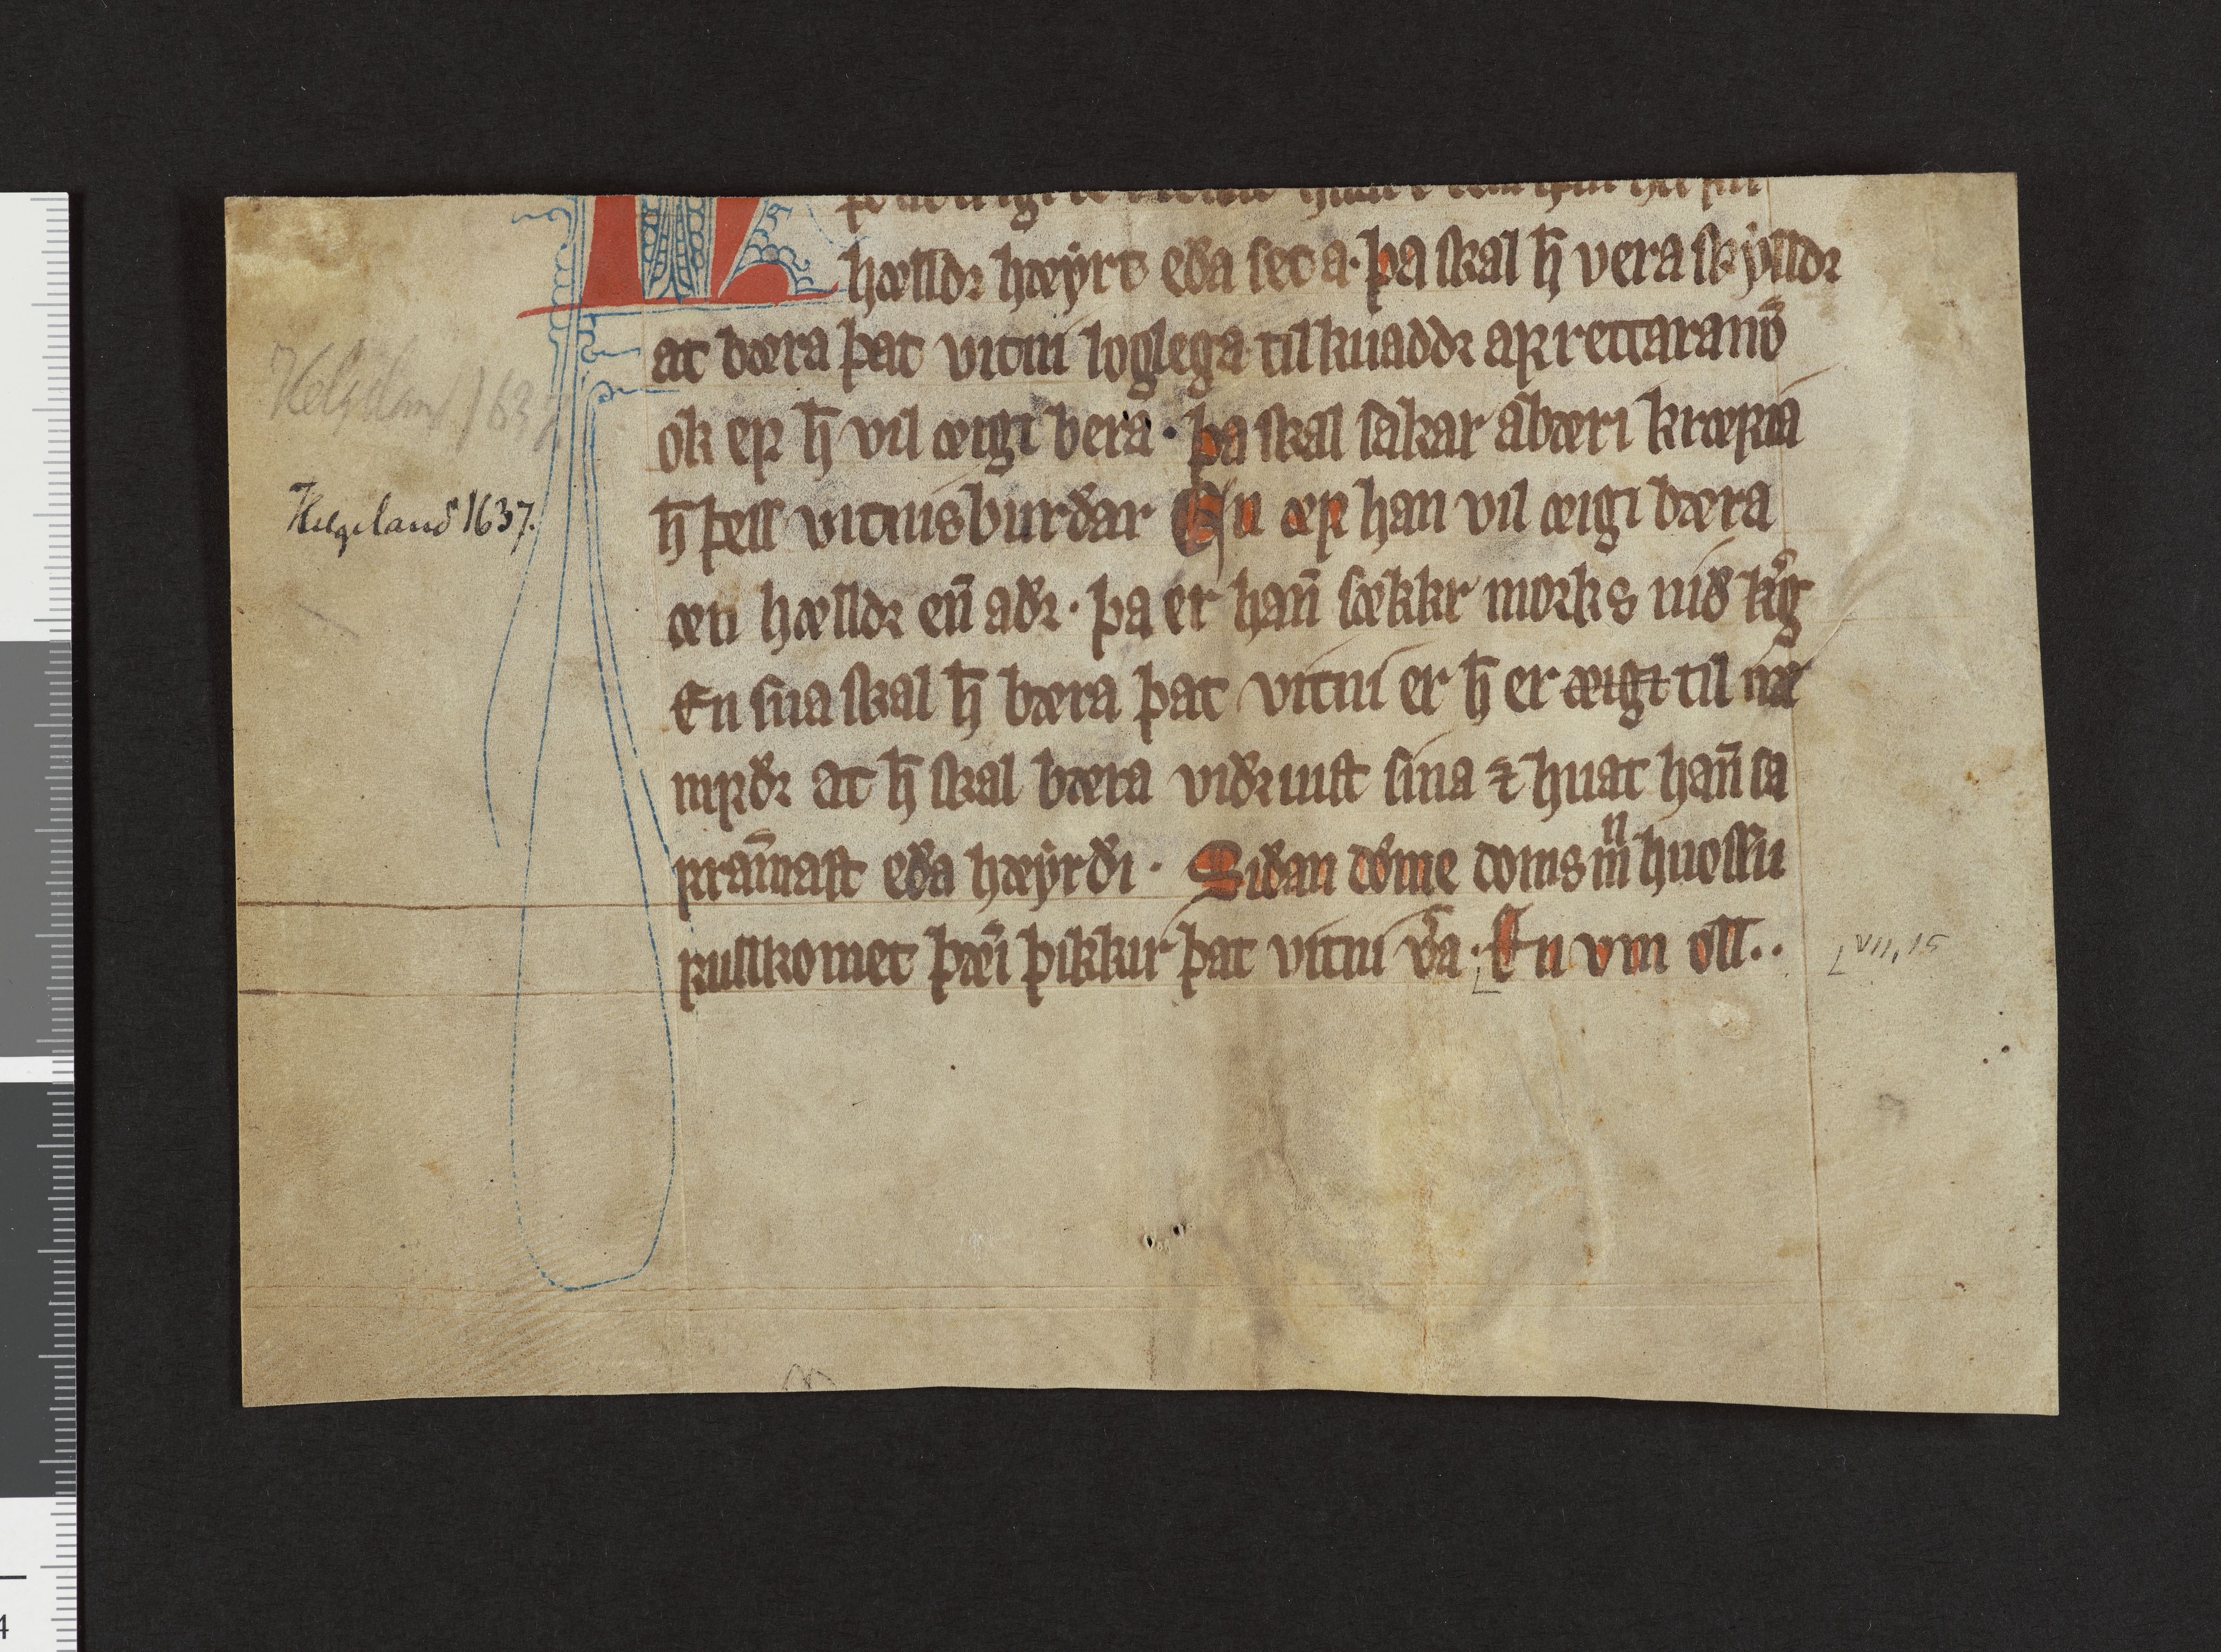 hælldr hæyrt eða set a· þa skal h̅ vera skylldr
at bæra þat vitni loglega til kuaddr af rettaranū
ok ef h̅ vil æigi bera · þa skal sakar abæri kræfia
h̅ þess vitnisburðar En æf han vil æigi bæra
æn hælldr en̅ aðr · þa er han̅ sækkr morks við kg̅
En sua skal h̅ bæra þat vitni er h̅ er æigi til næ
mfdr at h̅ skal bæra viðruist sina ⁊ huat han̅ sa
fram̅ast eða hæyrði · Siðan dǿme doms m̅n huossu
fullkomet þæi̅ þikkir þat vitni v͛a · En vm oll··
Helgeland 1637
Helgeland 1637.
VII, 15